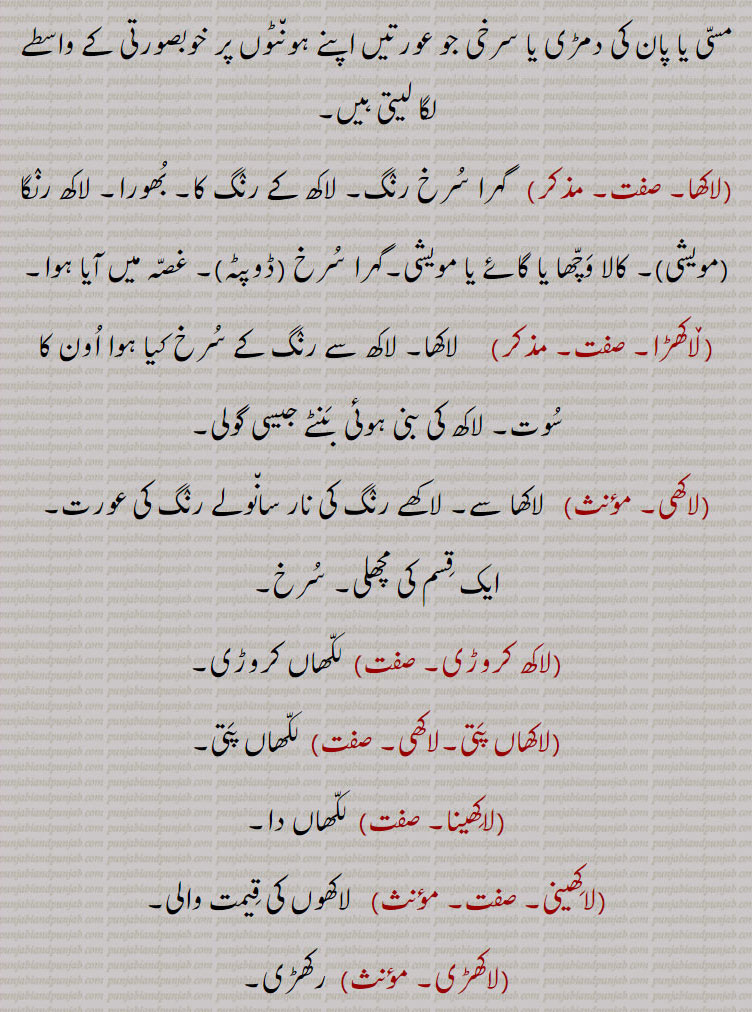 مسّی یا پان کی دمڑی یا سرخی جو عورتیں اپنے ہونٹوں پر خوبصورتی کے واسطے
لگا لیتی ہیں۔
(لاکھا۔ صفت۔ مذکر) گہرا سُرخ رنگ۔ لاکھ کے رنگ کا۔ بُھورا۔ لاکھ رنگا
(مویشی)۔ کالا وَچھّا یا گائے یا مویشی۔ گہرا سُرخ (ڈوپٹہ)۔ غصّہ میں آیا ہوا۔
(لاکھڑا۔ صفت۔ مذکر) لاکھا۔ لاکھ سے رنگ کے سُرخ کیا ہوا اُون کا
سُوت۔ لاکھ کی بنی ہوئی بَنٹے جیسی گولی۔
(لاکھی۔ مؤنث) لاکھا سے۔ لاکھے رنگ کی نار سانولے رنگ کی عورت۔
ایک قِسم کی مچھلی۔ سُرخ۔
(لاکھ کروڑی۔ صفت) لکّھاں کروڑی۔
(لاکھاں پَتی۔ لاکھی۔ صفت) لکّھاں پَتی۔
(لاکِھینا۔ صفت) لکّھاں دا۔
(لاکِھینی۔ صفت۔ مؤنث) لاکھوں کی قِیمت والی۔
(لاکھڑی۔ مؤنث) رکھڑی۔